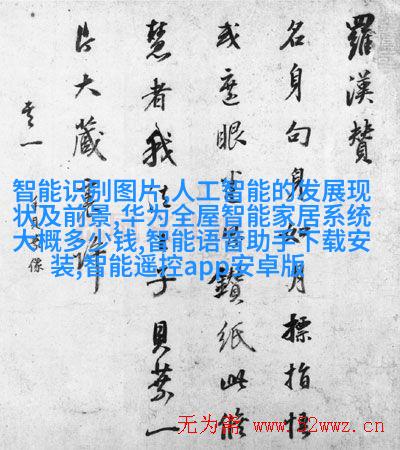 羅漢贊
名身句身如月標指
或遮眼鑽紙此脩
慧者我子貝葉一
片大藏許
智能识别图片,人工智能的发展现
状及前景,华为全屋智能家居系统
大概多少钱,智能语音助手下载安
装,智能遥控app安卓版
无为 www.52wwz.cn